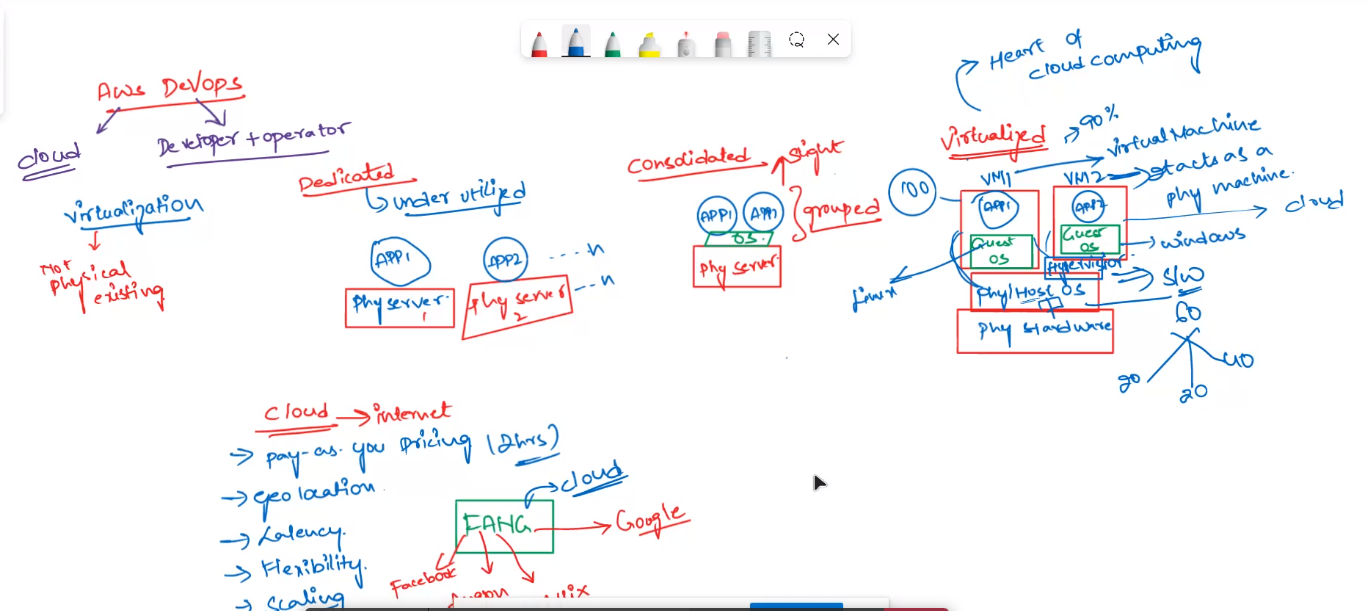 Aws DevOps
cloud
Developer + operator
virtualization
Not
physical
existing
Dedicated
under utilized
APP1
APP2
n
Phy server
1
Phy server
2
n
Consolidated
slight
APP1
APP1
grouped
OS
Phy server
Heart of
cloud computing
Virtualized
90%
Virtual Machine
VM1
VM2
acts as a
phy machine.
cloud
100
APP1
APP2
Guest
OS
Guest
OS
windows
Linux
Hypervisior
S/W
Phy/Host OS
60
Phy Hardware
20
20
40
Cloud
internet
Pay-as-you pricing (2hrs)
geo location
Latency.
Flexibility.
Scaling
cloud
FANG
Google
Facebook